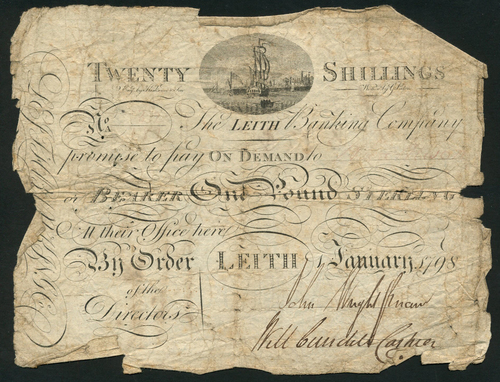 TWENTY SHILLINGS
No
The LEITH Banking Company
promise to pay ON DEMAND to
or BEARER One Pound STERLING
At their Office here
By Order LEITH 1 January 1798
of the
Directors
John
Will Cashier